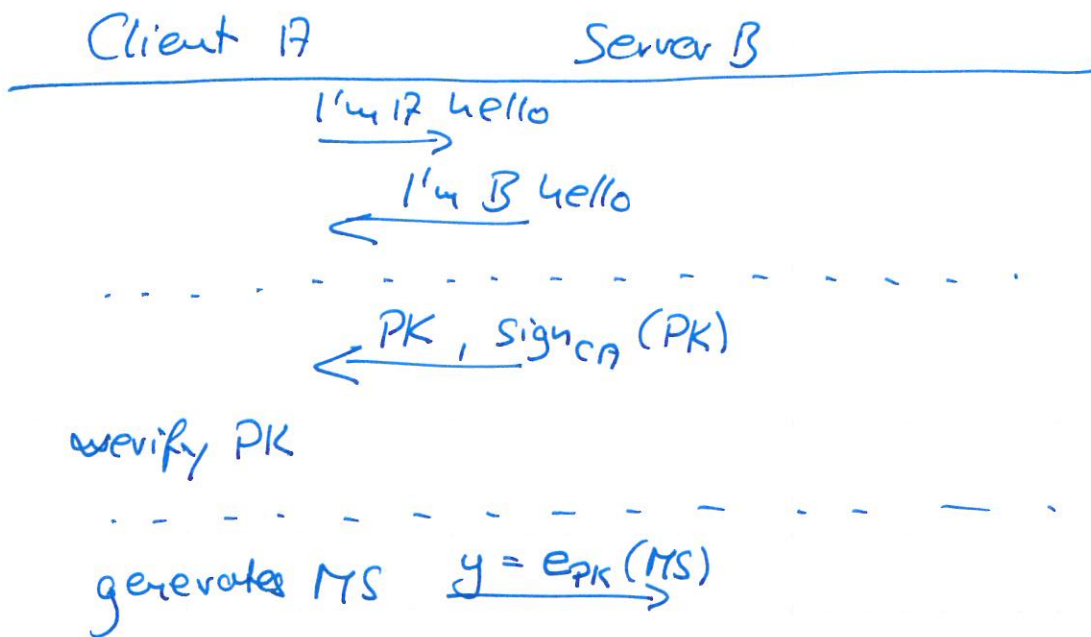 Client A Server B
I'm A hello
I'm B hello
PK, sign_CA (PK)
verify PK
generates MS y = e_PK (MS)